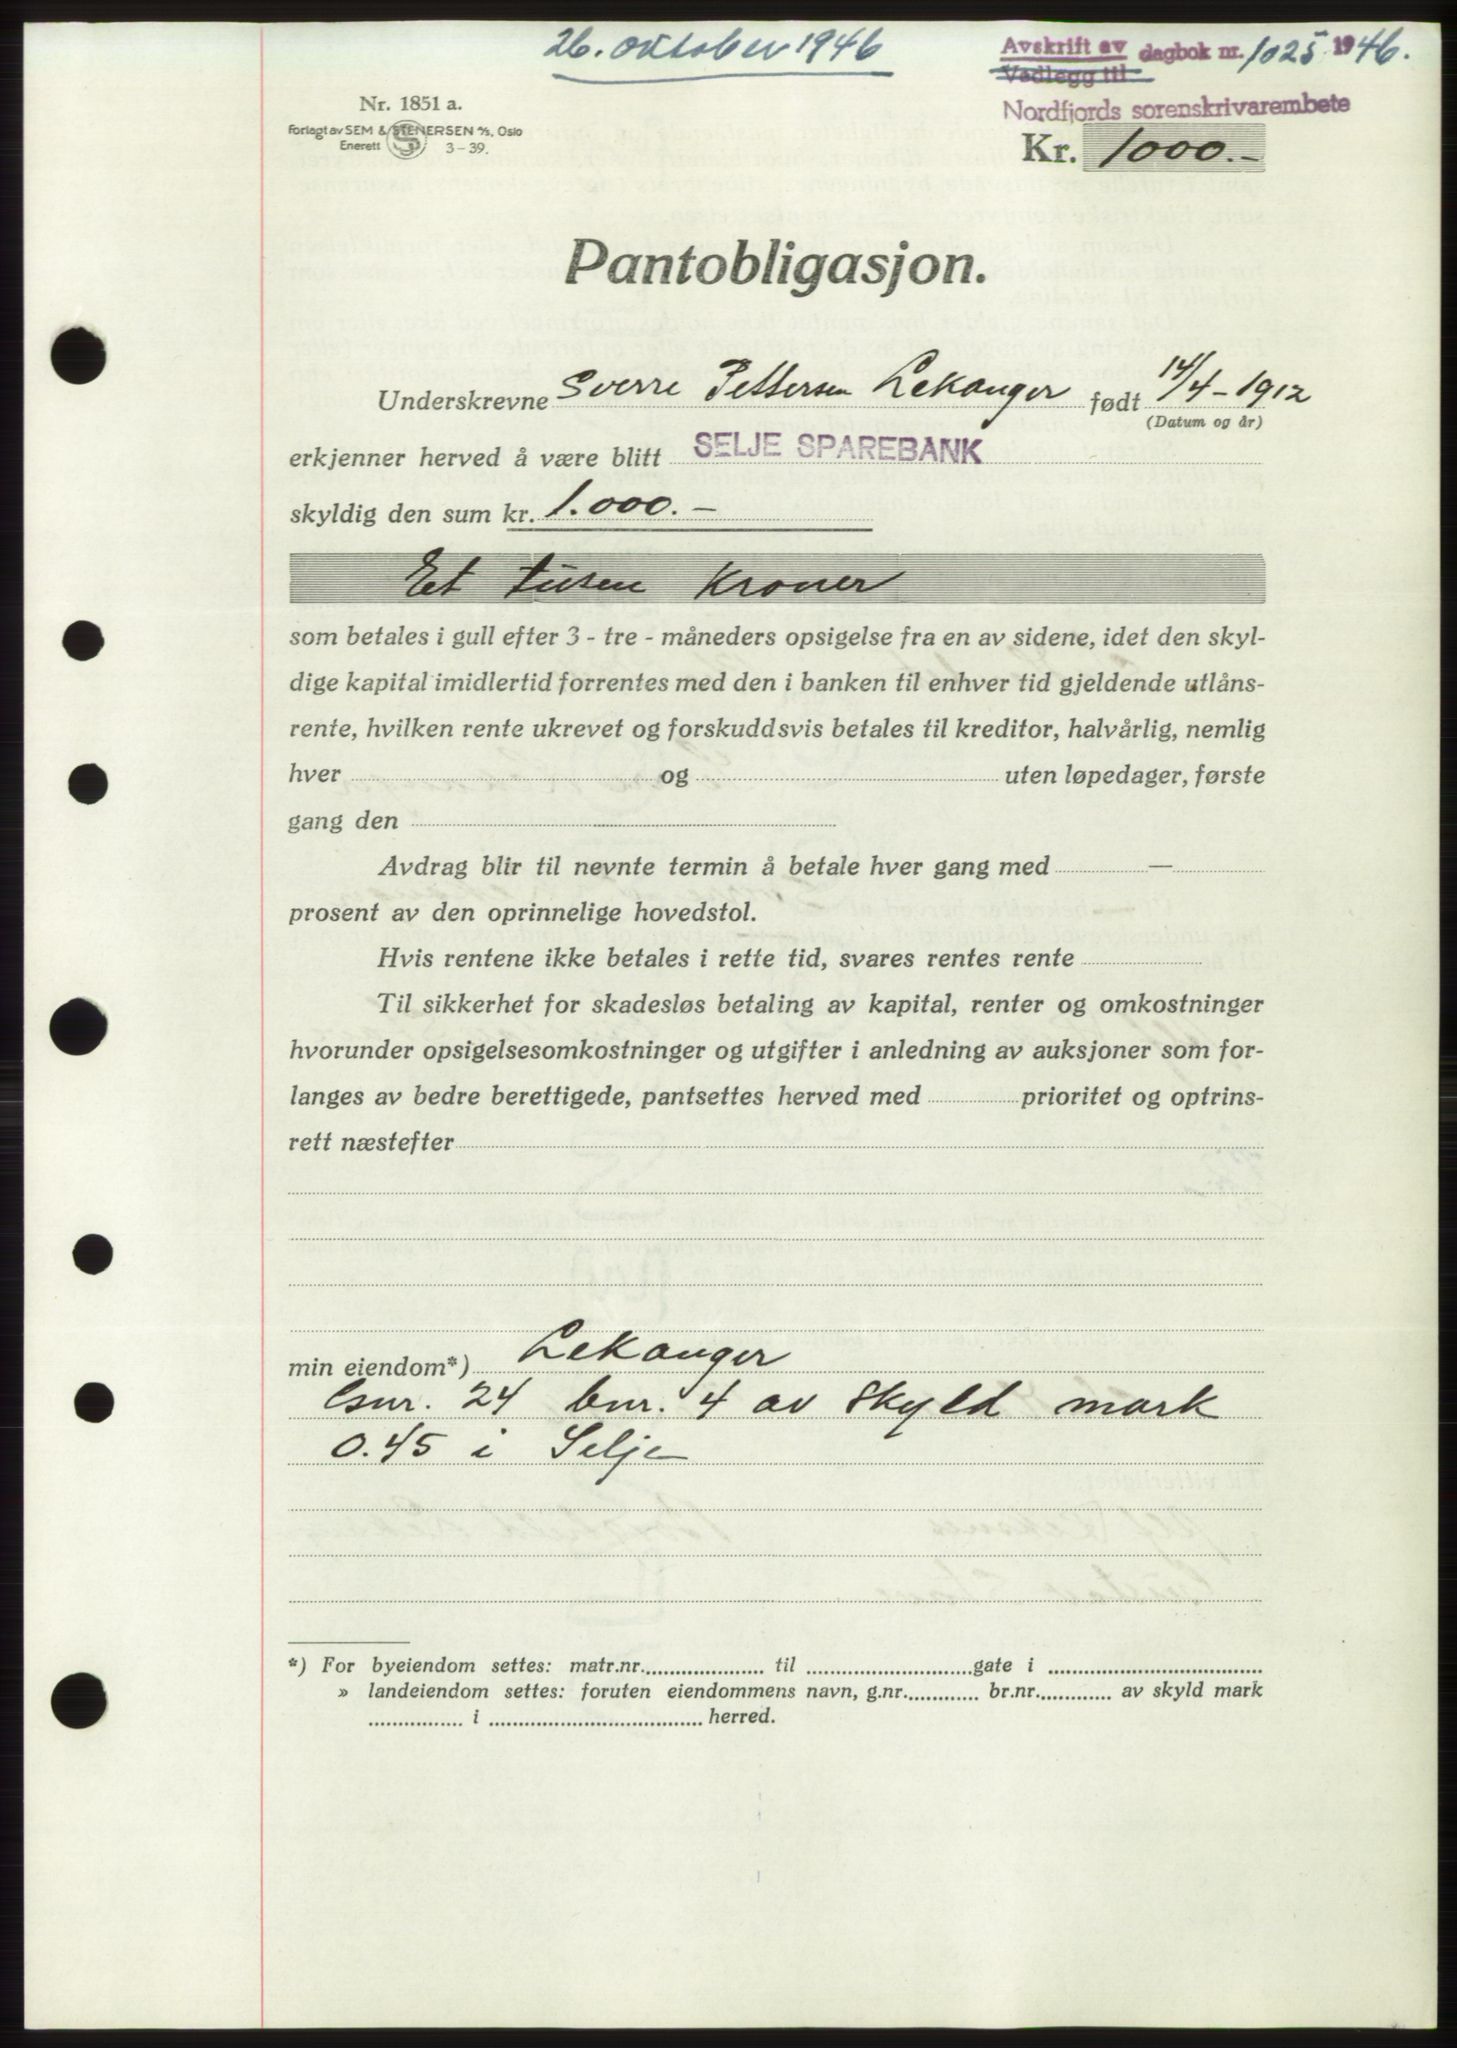 26. oktober 1946
Avskrift av dagbok nr. 1025 1946.
Vedlegg til
Nordfjords sorenskrivarembete
Nr. 1851 a.
Forlagt av SEM & STENERSEN A/S, Oslo
Enerett 3-39.
Kr. 1000.-
Pantobligasjon.
Underskrevne Sverre Pettersen Lekanger født 14/4-1912
(Datum og år)
erkjenner herved å være blitt SELJE SPAREBANK
skyldig den sum kr. 1.000.-
Et tusen Kroner
som betales i gull efter 3 - tre - måneders opsigelse fra en av sidene, idet den skyl-
dige kapital imidlertid forrentes med den i banken til enhver tid gjeldende utlåns-
rente, hvilken rente ukrevet og forskuddsvis betales til kreditor, halvårlig, nemlig
hver og uten løpedager, første
gang den
Avdrag blir til nevnte termin å betale hver gang med —
prosent av den oprinnelige hovedstol.
Hvis rentene ikke betales i rette tid, svares rentes rente
Til sikkerhet for skadesløs betaling av kapital, renter og omkostninger
hvorunder opsigelsesomkostninger og utgifter i anledning av auksjoner som for-
langes av bedre berettigede, pantsettes herved med prioritet og optrins-
rett næstefter
min eiendom*) Lekanger
Gnr. 24 bnr. 4 av skyld mark
0.45 i Selje
*) For byeiendom settes: matr.nr. til gate i
» landeiendom settes: foruten eiendommens navn, g.nr. br.nr. av skyld mark
i herred.